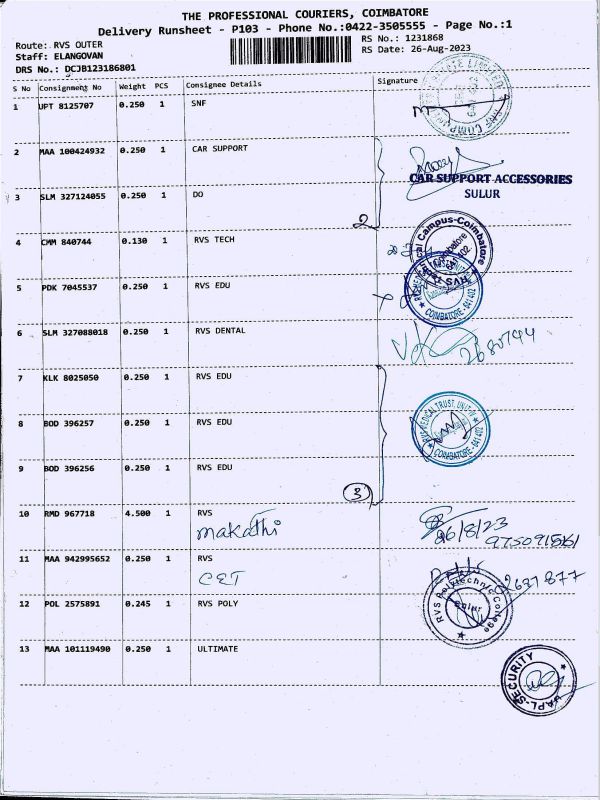 THE PROFESSIONAL COURIERS, COIMBATORE
Delivery Runsheet - P103 - Phone No.:0422-3505555 - Page No.:1
Route: RVS OUTER RS No.: 1231868
Staff: ELANGOVAN RS Date: 26-Aug-2023
DRS No.: DCJB123186801
S No Consignment No Weight PCS Consignee Details Signature
1 UPT 8125707 0.250 1 SNF
2 MAA 100424932 0.250 1 CAR SUPPORT
CAR SUPPORT ACCESSORIES
SULUR
3 SLM 327124055 0.250 1 DO
2
4 CMM 840744 0.130 1 RVS TECH
5 PDK 7045537 0.250 1 RVS EDU
COIMBATORE - 641 402
6 SLM 327088018 0.250 1 RVS DENTAL
2680794
7 KLK 8025050 0.250 1 RVS EDU
8 BOD 396257 0.250 1 RVS EDU
RVS MEDICAL TRUST, UNIT-IV
COIMBATORE - 641 402
9 BOD 396256 0.250 1 RVS EDU
3
10 RMD 967718 4.500 1 RVS
makathi 26/8/23
11 MAA 942995652 0.250 1 RVS
CET 2687877
12 POL 2575891 0.245 1 RVS POLY
RVS Polytechnic College
Sulur
13 MAA 101119490 0.250 1 ULTIMATE
UAPL-SECURITY